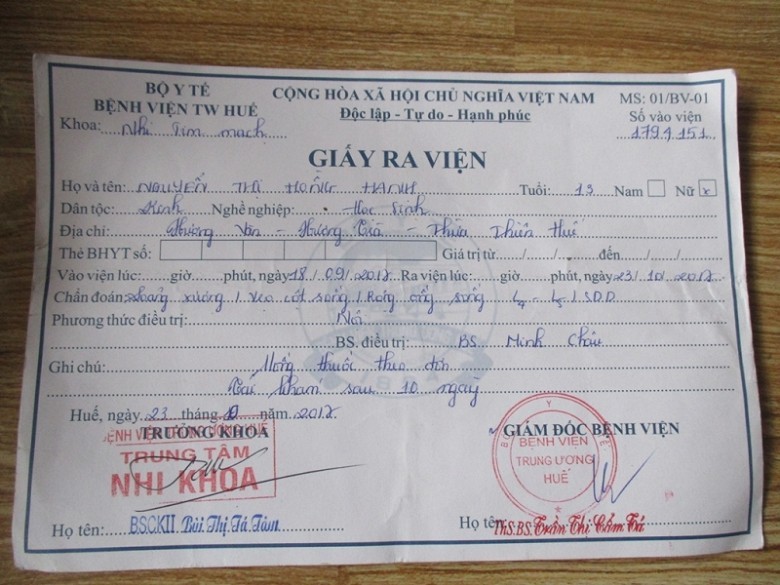 BỘ Y TẾ
BỆNH VIỆN TW HUẾ
Khoa: Nhi Tim mạch
CỘNG HÒA XÃ HỘI CHỦ NGHĨA VIỆT NAM
Độc lập - Tự do - Hạnh phúc
MS: 01/BV-01
Số vào viện
179.4.151
GIẤY RA VIỆN
Họ và tên: NGUYỄN THỊ HỒNG HẠNH Tuổi: 13 Nam Nữ x
Dân tộc: Kinh Nghề nghiệp: Học sinh
Địa chỉ: Hương Vân - Hương Trà - Thừa Thiên Huế
Thẻ BHYT số: Giá trị từ:....../....../...... đến....../....../......
Vào viện lúc:......giờ......phút, ngày 18/09/2012 Ra viện lúc:......giờ......phút, ngày 23/10/2012
Chẩn đoán: xương / Vẹo cột sống / Rỗng ống sống L4 - L5 / SDD
Phương thức điều trị: Nội
BS. điều trị: BS Minh Châu
Ghi chú: Uống thuốc theo đơn
Tái khám sau 10 ngày
Huế, ngày 23 tháng 10 năm 2012
TRƯỞNG KHOA
BỆNH VIỆN TRUNG ƯƠNG HUẾ
TRUNG TÂM
NHI KHOA
Họ tên: BS.CKII Bùi Thị Tá Tâm
GIÁM ĐỐC BỆNH VIỆN
BỘ Y TẾ
BỆNH VIỆN
TRUNG ƯƠNG
HUẾ
Họ tên: ThS.BS. Trần Thị Cẩm Tú